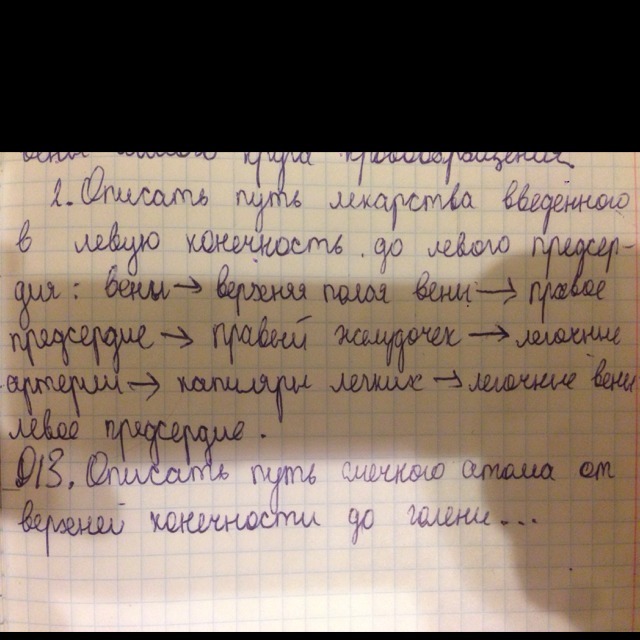 вены малого круга кровообращения.
2. Описать путь лекарства введённого
в левую конечность до левого предсер-
дия: вены → верхняя полая вены → правое
предсердие → правый желудочек → легочные
артерии → капиляры легких → легочные вены
левое предсердие.
D/З. Описать путь меченого атома от
верхней конечности до голени...